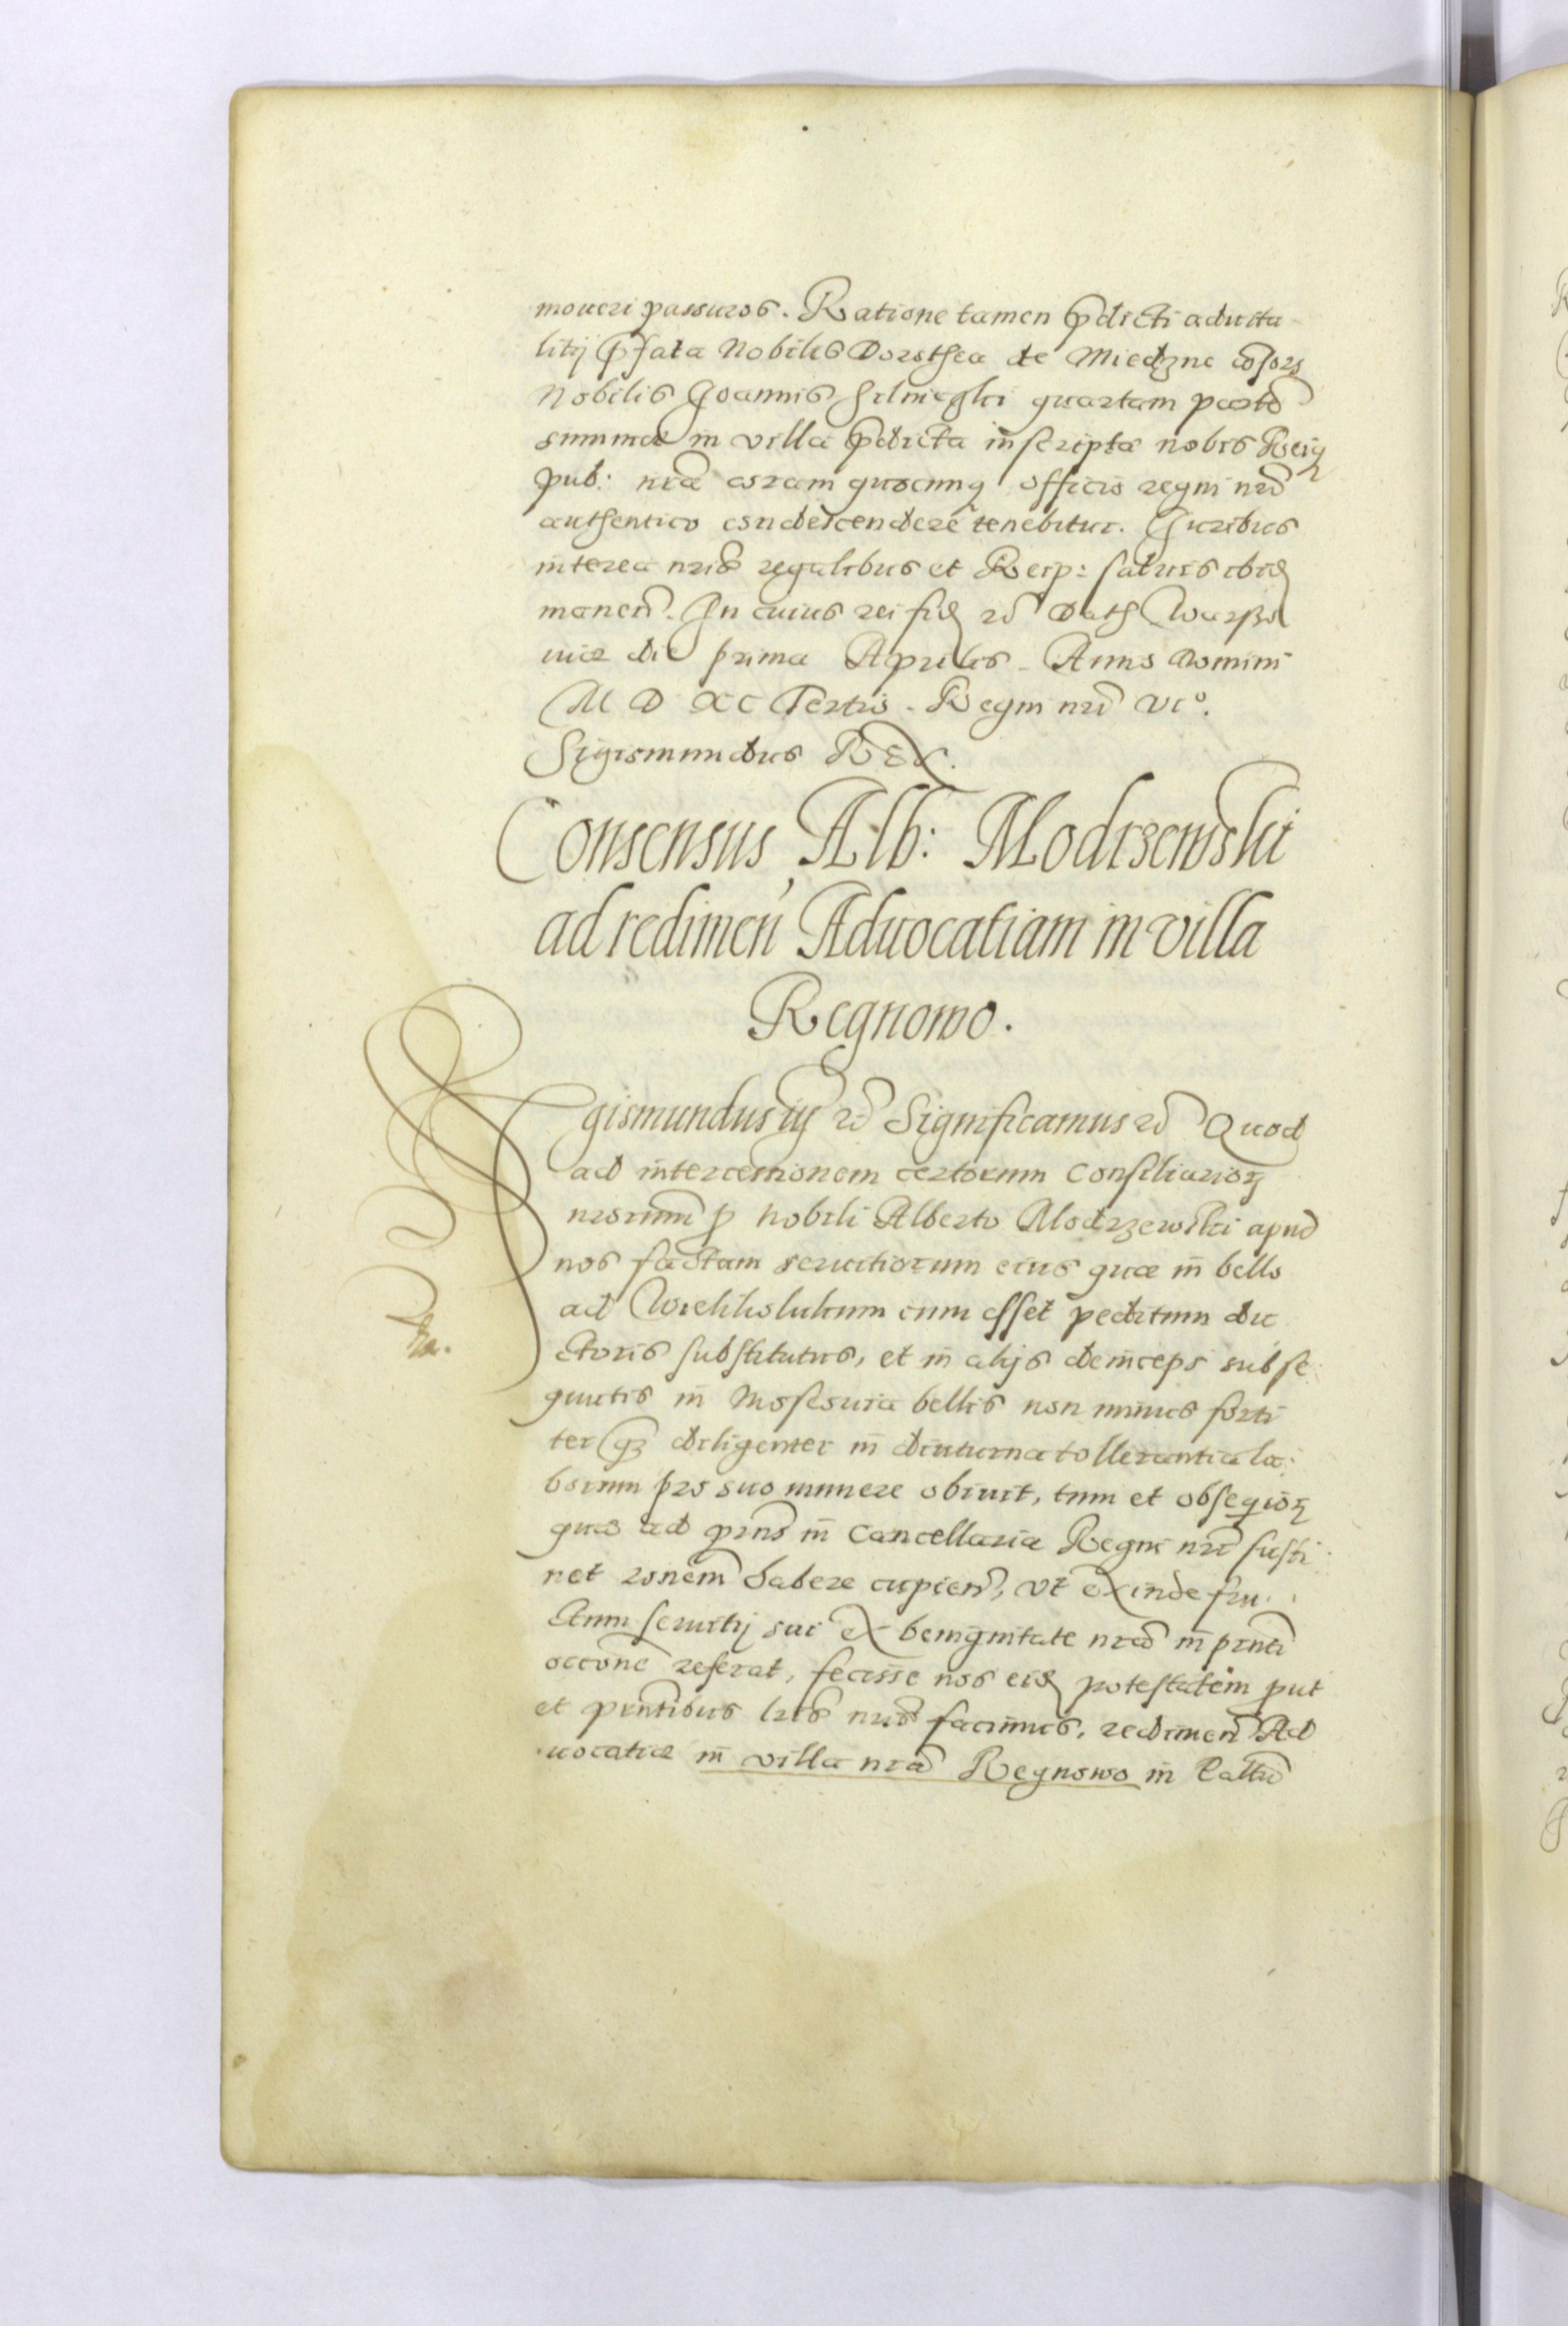 moueri passuros. Ratione tamen pdicti aduita
litij pfata Nobilis Dorothea de Miedzne cosors
Nobilis Joannis quartam parte
summae in villa pdicta inscriptae nobis Reiq
pub: nrae coram quocunq officio regni nri
authentico condescendere tenebitur. Juribus
interea nris regalibus et Reip: saluis ibid
manen. In cuius rei fid rc Dat Warsso
uiae die prima Aprilis. Anno Domini
M D XC Tertio. Regni nri VIo.
Sigismundus REX.
Consensus Alb: Modrzewski
ad redimen Aduocatiam in villa
Regnowo.
Sigismundus iij rc Significamus rc Quod
ad intercessionem certorum Consiliarior
nrorum p Nobili Alberto Modrzewski apud
nos factam seruitiorum eius quae in bello
ad Wielikolukum cum esset peditum du
ctoris substitutus, et in alijs deinceps subse
quutis in Moscouia bellis non minus forti
ter q diligenter in diuturna tollerantia la:
borum pro suo munere obiuit, tum et obsequior
quae ad prns in Cancellaria Regni nri susti
net ronem habere cupien, vt exinde fru
ctum seruitij sui ex benignitate nra in prnti
occone referat, fecisse nos eid potestatem put
et prntibus lris nris facimus, redimen Ad
uocatiae in villa nra Regnowo in